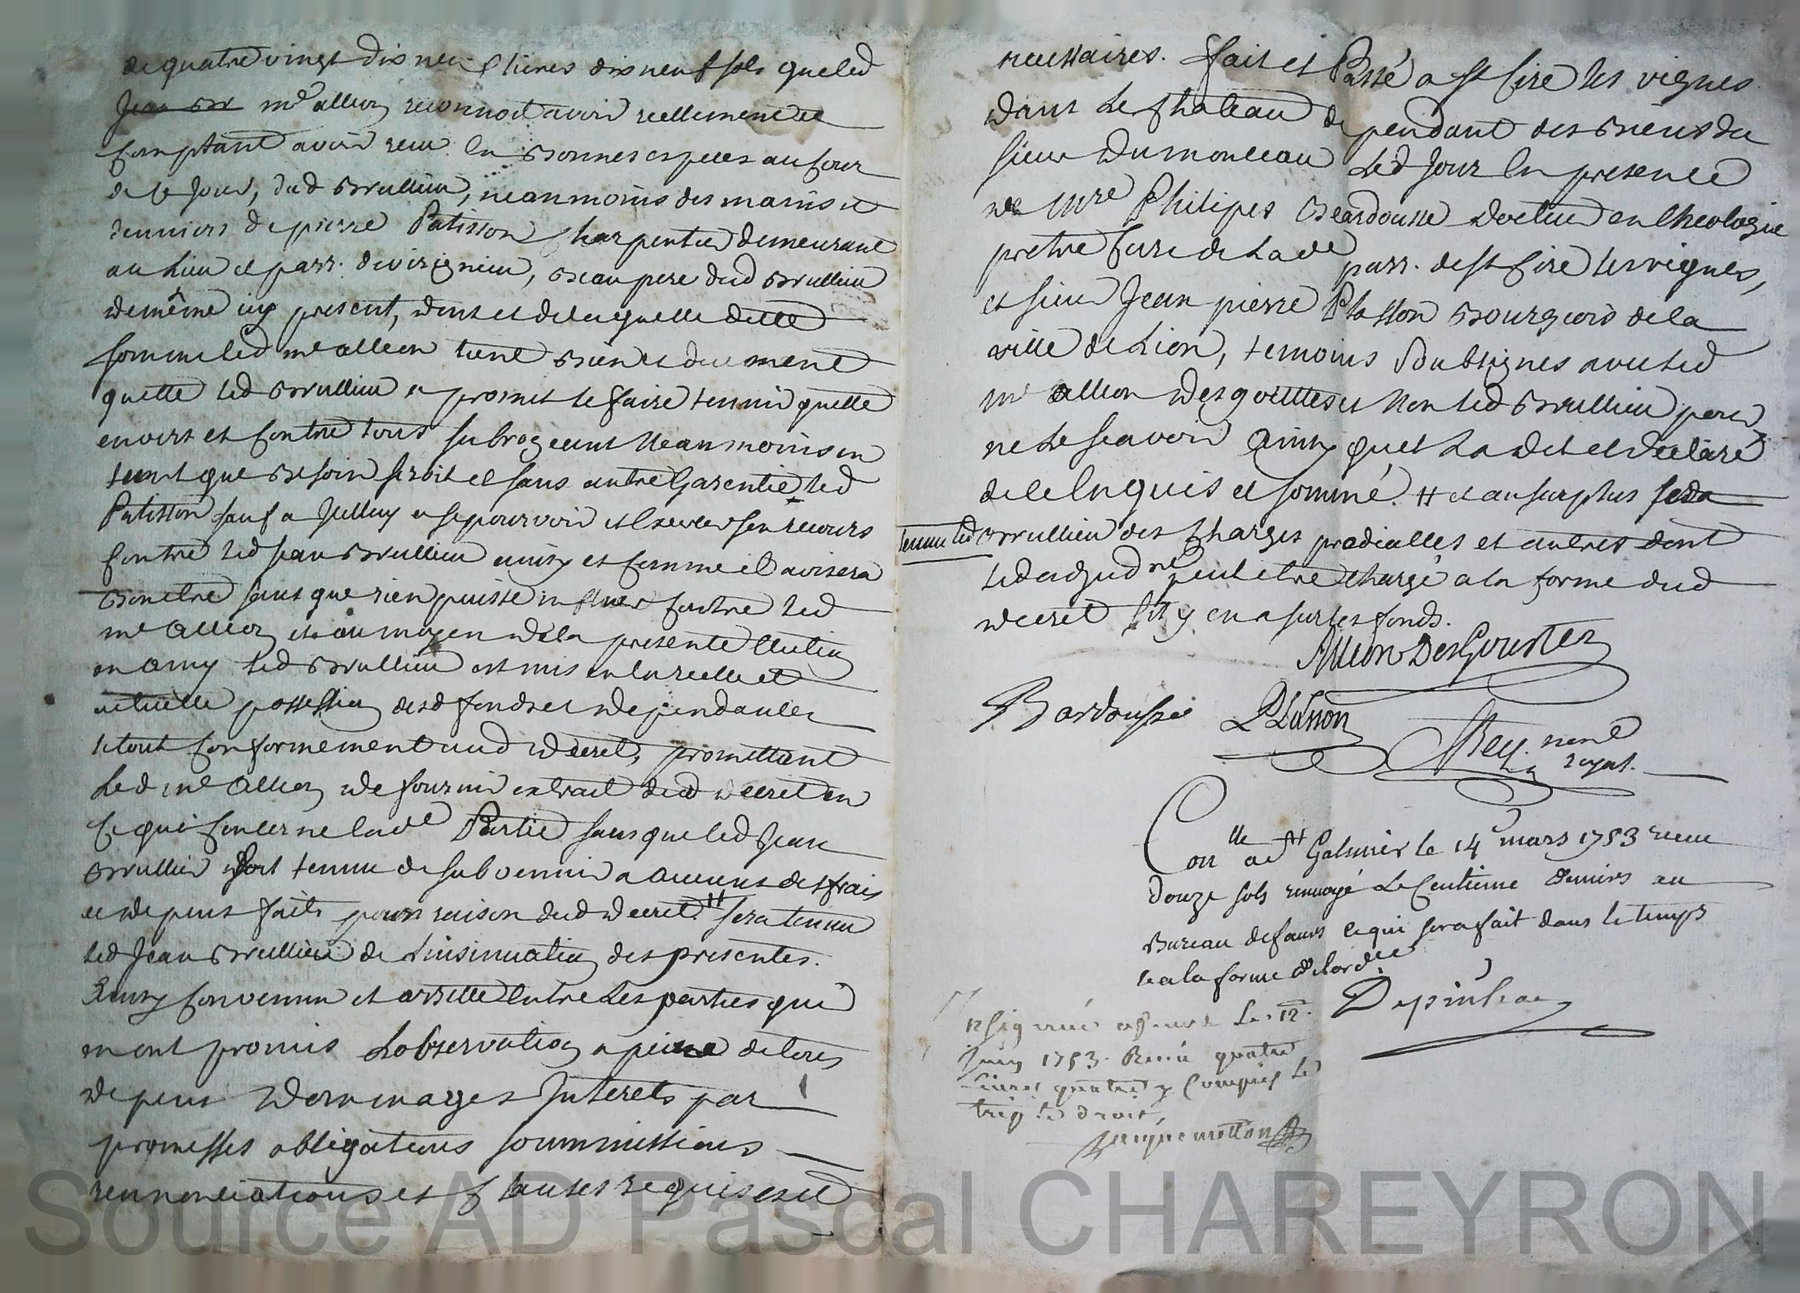 de quatre vingt dix neuf livres dix neuf sols que led
Jean Br me allion reconnoit avoir reellement et
comptant avoir receu en bonnes especes au cour
de ce jour, dud Brullieu, neanmoins des mains et
denniers de pierre Patisson charpentier demeurant
au lieu et parr. de virignieu, beau pere dud Brullieu
de même icy present, dont et de laquelle ditte
somme led me alleon tient bien et duement
quitte led Brullieu et promet le faire tennir quitte
envers et contre tous subrogeant neanmoins en
tant que besoin seroit et sans autre garentie led
Patisson sauf a julluy a se pourvoir et exercer son recours
contre led jean Brullieu ainsy et comme il avisera
bon etre sans que rien puisse influer contre led
me Allion et au moyen de la presente election
en amy led Brullieu est mis en la reelle et
actuelle possession desd fonds et dependances
le tout conformement aud decret, promettant
led me Allion de fournir extrait dud decret en
ce qui concerne lade Partie sans que led Jean
Brullieu soit tennu de subvennir a aucuns des frais
et depens faits pour raison dud decret # sera tennu
led Jean Brullieu de l'insinuation des presentes.
Ainsy convennu et arretté entre les parties qui
en ont promis l'observation a peine de tous
depens dommages interets par
promesses obligations soummissions
rennonciations et clauses requises et
necessaires. fait et Passé a st cire les vignes
dans le chateau dependant des biens du
sieur Dumonceau led jour en presence
de mre Philipes Beardousse docteur en theologie
pretre curé de lade parr. de st cire les vignes,
et sieur Jean pierre Plasson Bourgeois de la
ville de Lion, temoins soubsignes avec led
me allion Desgouttes et non led Brullieu pour
ne le scavoir ainsy qu'il la dit et declaré
de ce enquis et sommé. # et au surplus sera
tennu led Brullieu des charges predialles et autres dont
led adjudre peut etre chargé a la forme dud
decret s'il y en a sur les fonds.
Allion DesGouttes
Bardousse PLasson
Rey nore
royal.
Conlle a st Galmier le 14 mars 1753 receu
douze sols renvoyé le Centieme deniers au
Bureau de feurs ce qui sera fait dans le temps
et a la forme de lordce
Depinhac
Insignué a feurs le 12
juin 1753. Receu quatre
livres quatre s compris le
trip le droit,
Jacquemetton
Source AD Pascal CHAREYRON